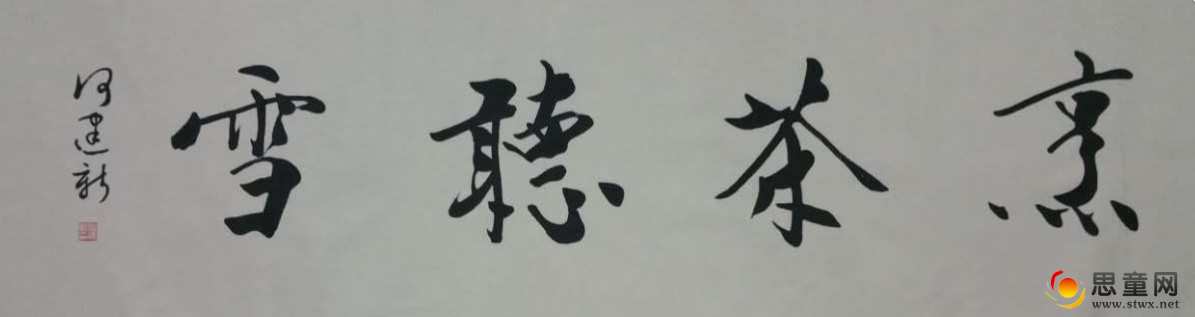 烹茶聽雪
何建新
思童网
www.stwx.net